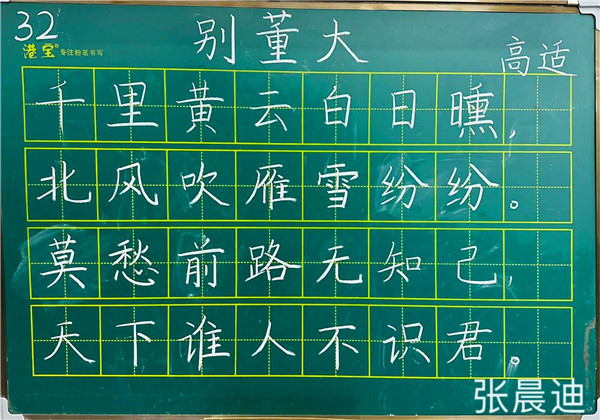 32
港宝® 专注粉笔书写
别董大
高适
千里黄云白日曛,
北风吹雁雪纷纷。
莫愁前路无知己,
天下谁人不识君。
张晨迪